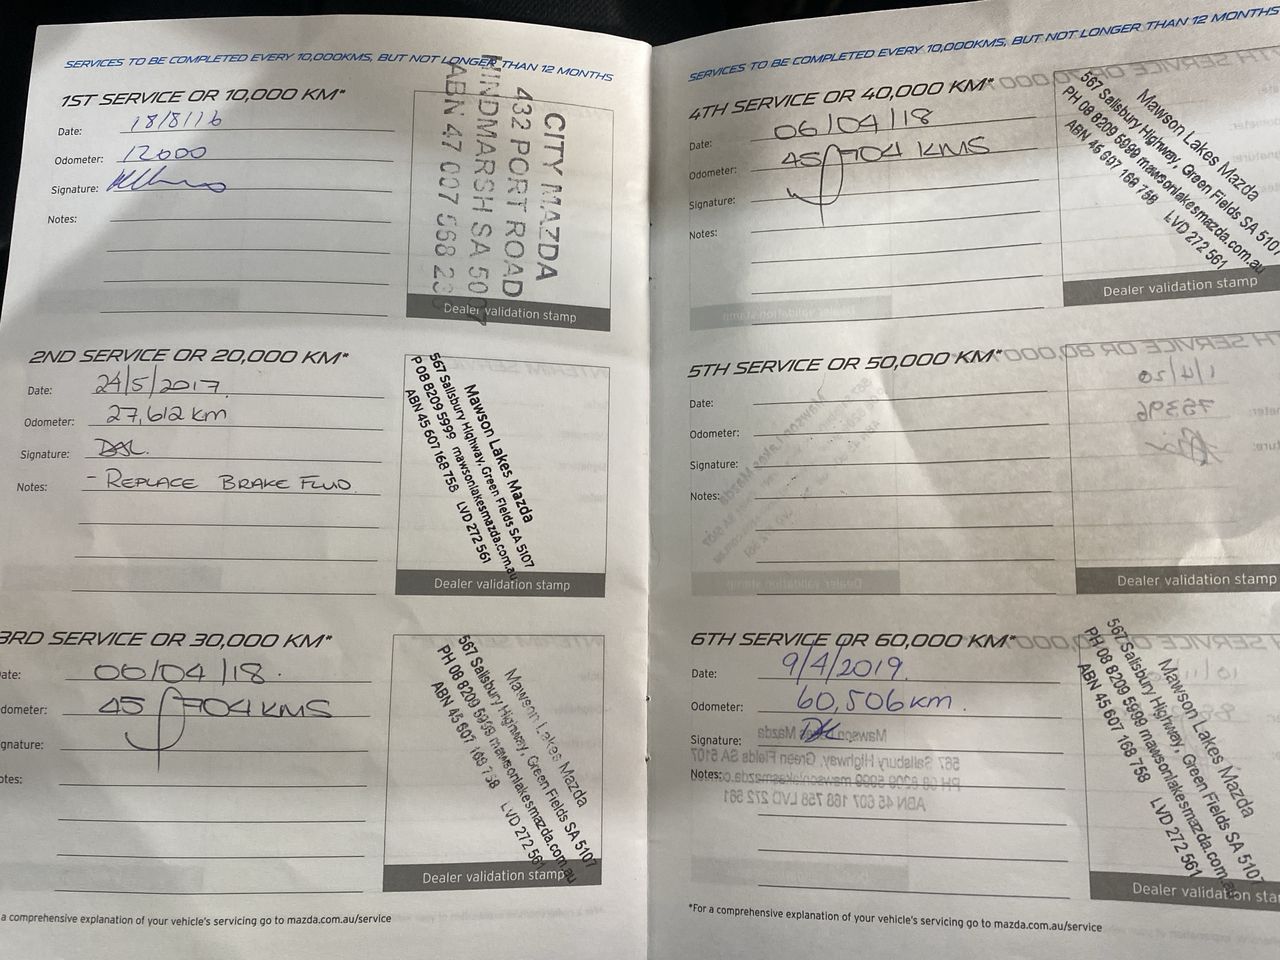 SERVICES TO BE COMPLETED EVERY 10,000KMS, BUT NOT LONGER THAN 12 MONTHS
1ST SERVICE OR 10,000 KM*
Date: 18/8/16
Odometer: 12000
Signature:
Notes:
CITY MAZDA
432 PORT ROAD
HINDMARSH SA 5007
ABN 47 007 568 23
Dealer validation stamp
2ND SERVICE OR 20,000 KM*
Date: 24/5/2017.
Odometer: 27,612 km
Signature:
Notes: - REPLACE BRAKE FLUID.
Mawson Lakes Mazda
567 Salisbury Highway, Green Fields SA 5107
P 08 8209 5999 mawsonlakesmazda.com.au
ABN 45 607 168 758 LVD 272 561
Dealer validation stamp
3RD SERVICE OR 30,000 KM*
ate: 06/04/18.
dometer: 45 704 KMS
gnature:
otes:
Mawson Lakes Mazda
567 Salisbury Highway, Green Fields SA 5107
PH 08 8209 5999 mawsonlakesmazda.com.au
ABN 45 607 168 758 LVD 272 561
Dealer validation stamp
a comprehensive explanation of your vehicle's servicing go to mazda.com.au/service
SERVICES TO BE COMPLETED EVERY 10,000KMS, BUT NOT LONGER THAN 12 MONTHS
4TH SERVICE OR 40,000 KM*
Date: 06/04/18
Odometer: 45 704 KMS
Signature:
Notes:
Mawson Lakes Mazda
567 Salisbury Highway, Green Fields SA 5107
PH 08 8209 5999 mawsonlakesmazda.com.au
ABN 45 607 168 758 LVD 272 561
Dealer validation stamp
5TH SERVICE OR 50,000 KM*
Date:
Odometer:
Signature:
Notes:
Dealer validation stamp
6TH SERVICE OR 60,000 KM*
Date: 9/4/2019.
Odometer: 60,506km.
Signature:
Notes:
Mawson Lakes Mazda
567 Salisbury Highway, Green Fields SA 5107
PH 08 8209 5999 mawsonlakesmazda.com
ABN 45 607 168 758 LVD 272 561
Dealer validation sta
*For a comprehensive explanation of your vehicle's servicing go to mazda.com.au/service